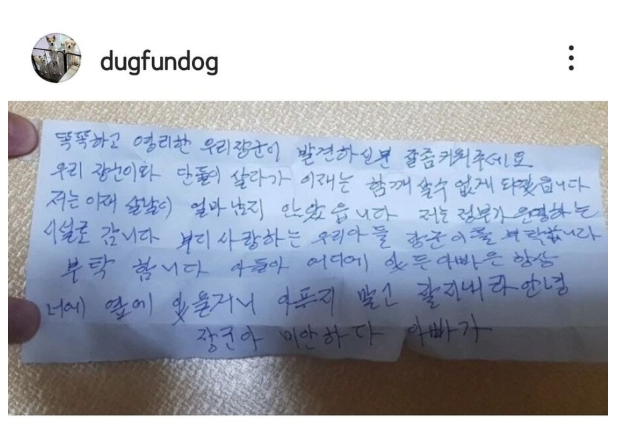 dugfundog
똑똑하고 영리한 우리장군이 발견하실분 잘좀키워주세요
우리 장군이와 단둘이 살다가 이재는 함깨 살수 없게 돼젔읍니다
저는이재 살날이 얼마남지 안았읍니다 저는 정부가 운영하는
시설로 갑니다 부디 사랑하는 우리아들 장군이를 부탁합니다
부탁 합니다 아들아 어디에 있든 아빠은 항상
너에 옆에 있을거니 아푸지 말고 잘지내라 안녕
장군아 미안하다 아빠가